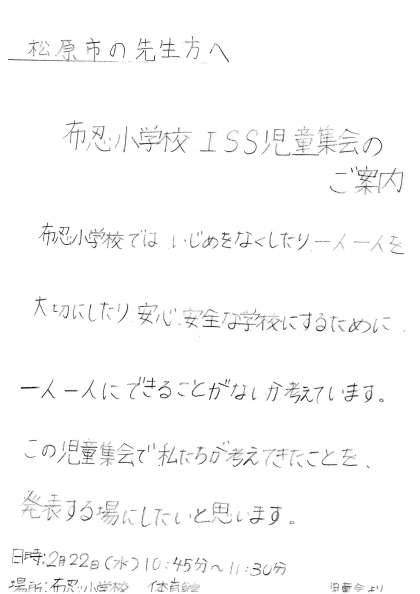 松原市の先生方へ
布忍小学校 ISS児童集会の
ご案内
布忍小学校では いじめをなくしたり、一人一人を
大切にしたり 安心、安全な学校にするために、
一人一人にできることがないか考えています。
この児童集会で私たちが考えてきたことを、
発表する場にしたいと思います。
日時:2月22日(水)10:45分~11:30分
場所:布忍小学校 体育館
児童会より